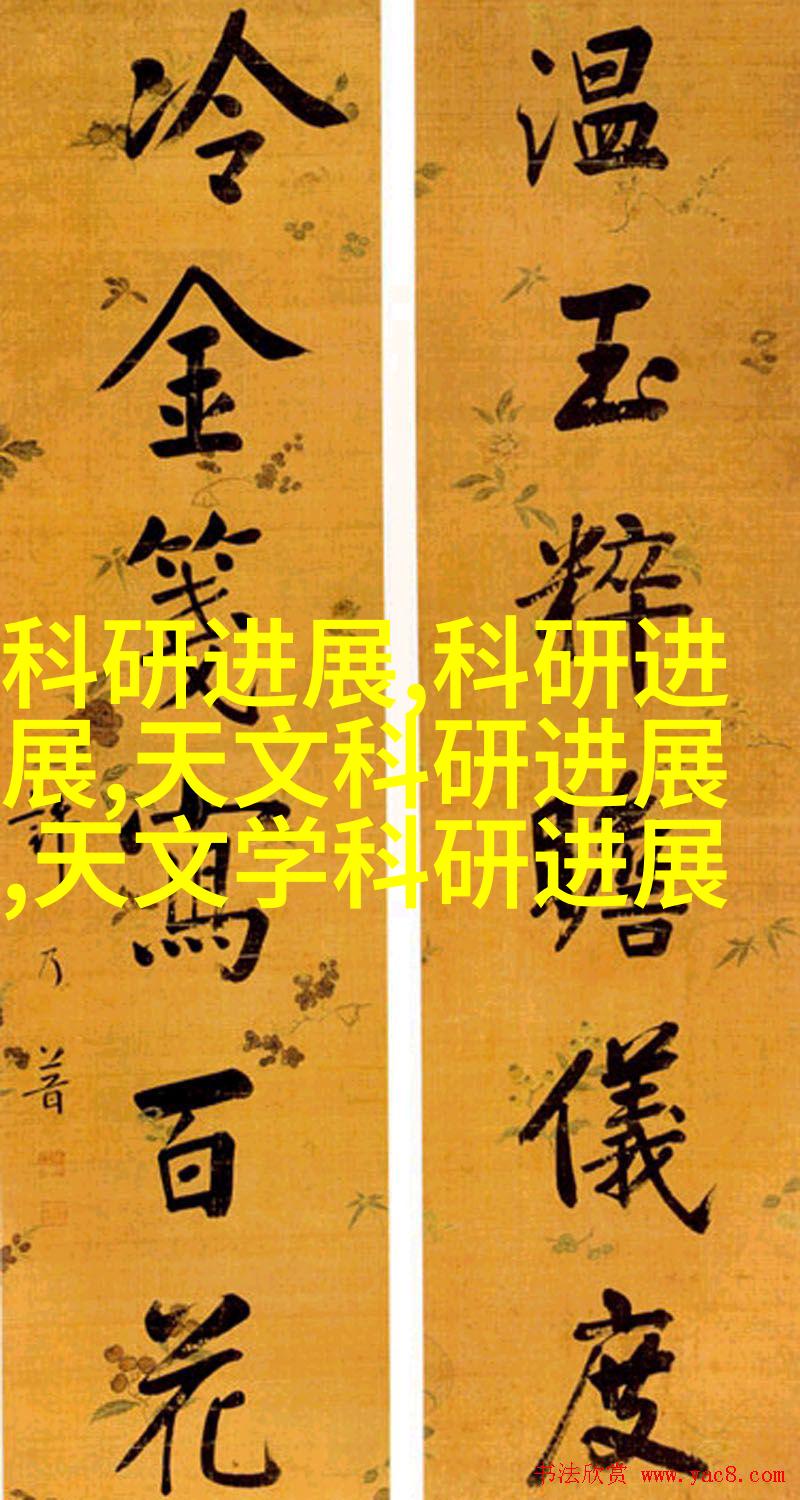 温玉粹瞻儀度
冷金箋寫百花
許乃普
科研进展,科研进
展,天文科研进展
,天文学科研进展
书法欣赏 www.yac8.com